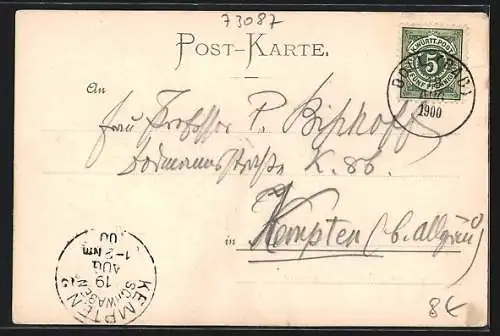 73087
POST-KARTE.
K. WÜRTT. POST
5
FÜNF PFENNIG
AUG
1900
An
Frau Professor P. Bischoff
Bodmannstraße K. 86.
in Kempten (b. Allgäu)
KEMPTEN
SCHWABEN
19
AUG
1-2 Nm
00
8€